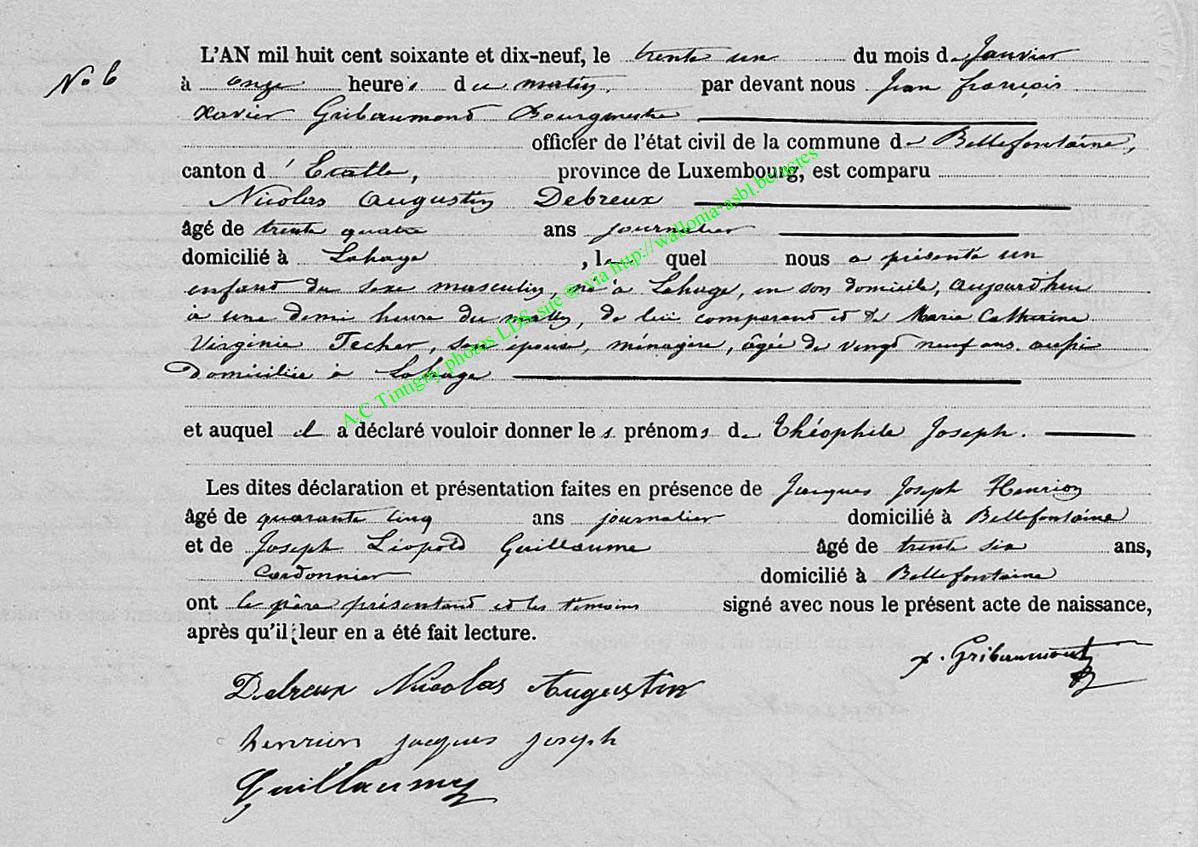 L'AN mil huit cent soixante et dix-neuf, le trente un du mois de Janvier
No 6
à onze heures du matin. par devant nous Jean françois
xavier Gribaumond Bourgmestre
officier de l'état civil de la commune de Bellefontaine,
canton d'Etalle, province de Luxembourg, est comparu
Nicolas Augustin Debreux
âgé de trente quatre ans journalier
domicilié à Lahage, le quel nous a présenté un
enfant du sexe masculin, né à Lahage, en son domicile, aujourd'heu
à une demi heure du matin, de lui comparant et de Marie Catherine
Virginie Techer, son épouse, ménagère, agée de vingt neuf ans aussi
Domiciliée à Lahage
et auquel il a déclaré vouloir donner les prénoms de Théophile Joseph.
Les dites déclaration et présentation faites en présence de Jacques Joseph Henrion
âgé de quarante cinq ans journalier domicilié à Bellefontaine
et de Joseph Léopold Guillaume âgé de trente six ans,
Cordonnier domicilié à Bellefontaine
ont le père présentant et les témoins signé avec nous le présent acte de naissance,
après qu'il leur en a été fait lecture.
x. Gribaumont
Debreux Nicolas Augustin
henrion jacques joseph
Guillaume
A.C Tintigny photos LDS site @ via http://wallonia-asbl.be/actes